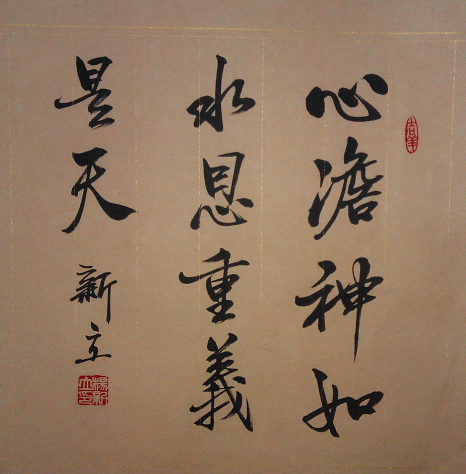 心澹神如
水恩重義
昊天 新立